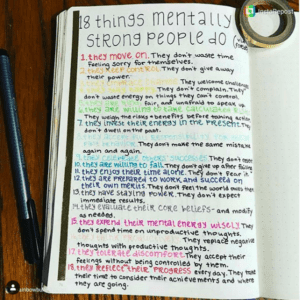 InstaRepost
18 things mentally
strong people do
1. they move on. They don't waste time
feeling sorry for themselves.
They don't give away
their power.
They welcome challenges
They don't complain. They
don't waste energy on things they can't control
fair, and unafraid to speak up.
6. they are willing to take calculated
They weigh the risks + benefits before taking action
7. they invest their energy in the present. They
don't dwell on the past.
They don't make the same mistake
again and again.
They don't resent
10. they are willing to fail. They don't give up after failing
11. they enjoy their time alone. They don't fear it
12. they are prepared to work and succeed on
their own merits. They don't feel the world owes them
13. they have staying power. They don't expect
immediate results.
14. they evaluate their core beliefs - and modify
as needed.
15. they expend their mental energy wisely. They
don't spend time on unproductive thoughts.
They replace negative
thoughts with productive thoughts.
17. they tolerate discomfort. They accept their
feelings without being controlled by them.
18. they reflect on their progress every day. They take
time to consider their achievements and where
they are going.